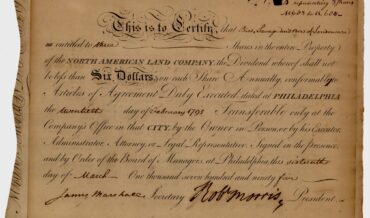 This is to Certify, that
entitled to three Shares in the entire Property
of the NORTH AMERICAN LAND COMPANY; the Dividend whereof shall not
be less than Six Dollars on each Share Annually, conformably to
Articles of Agreement Duly Executed dated at PHILADELPHIA
the twentieth day of February 1795 Transferable only at the
Company's Office in that CITY, by the Owner in Person or by his Executor,
Administrator, Attorney, or Legal Representative. Signed in the presence
and by Order of the Board of Managers, at Philadelphia, this sixteenth
day of March One thousand seven hundred and ninety five
James Marshall Secretary Rob Morris President